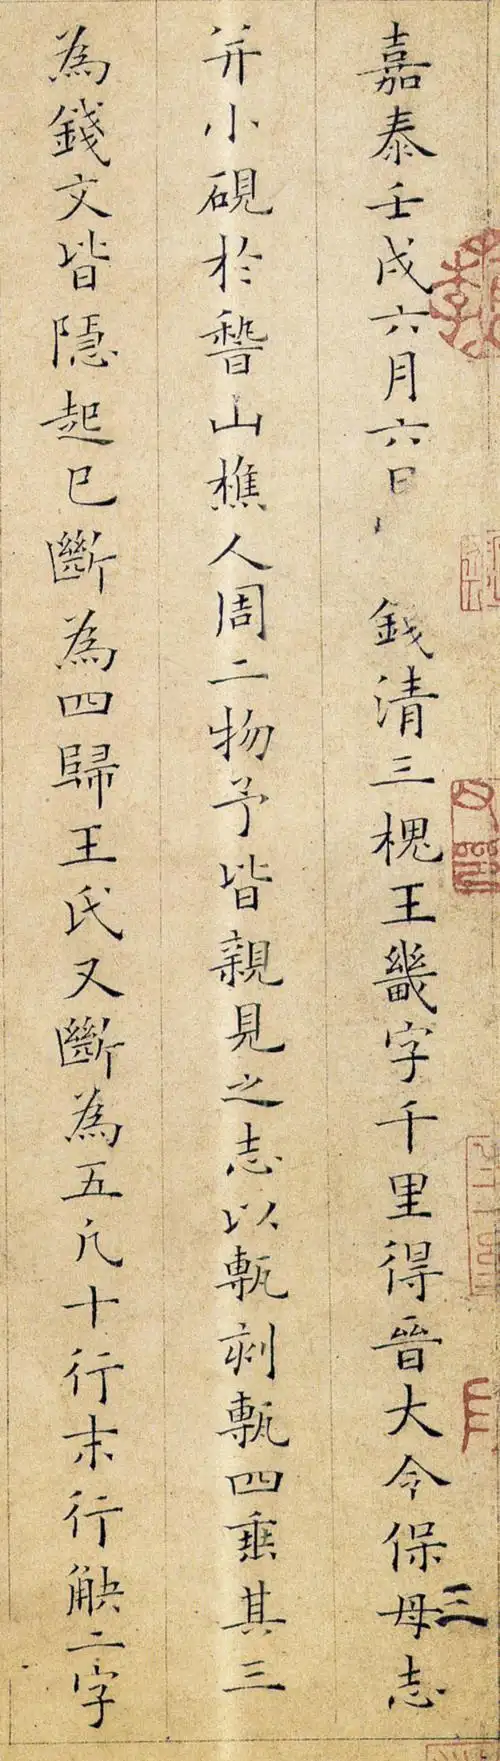 嘉泰壬戌六月六日錢清三槐王畿字千里得晉大令保母志
三
并小硯於稽山樵人周二物予皆親見之志以甎刻甎四垂其三
為錢文皆隱起已斷為四歸王氏又斷為五凡十行末行觖二字